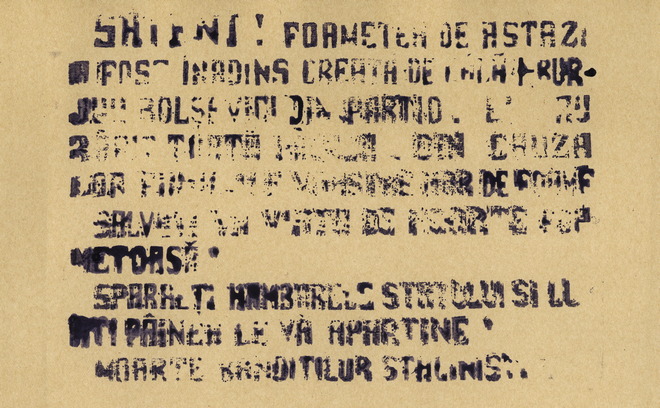 SĂTENI! FOAMETEA DE ASTAZI
A FOST INADINS CREATA DE
BOLSEVICI DIN PARTID. EI AU
TOATĂ DIN CAUZA
LOR VOASTRE MOR DE FOAME
SALVATI VA VIATA DE MOARTE
METOASĂ!
SPARGETI HAMBARELE STATULUI SI LU
ATI PÂINEA CE VĂ APARTINE!
MOARTE BANDITILOR STALINISTI